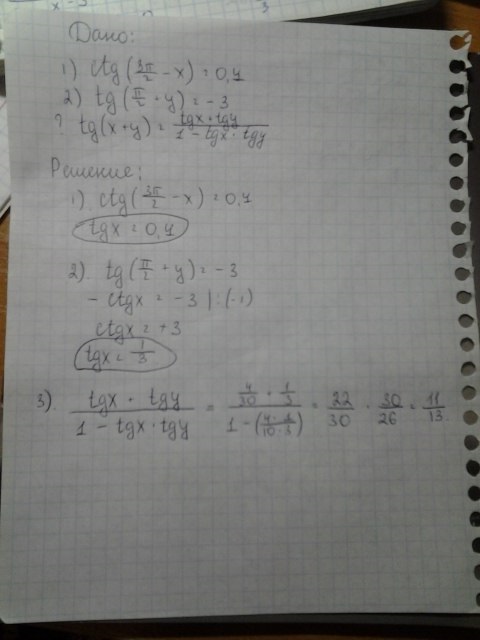 Дано:
1) ctg(3π/2 - x) = 0,4
2) tg(π/2 + y) = -3
? tg(x+y) = (tgx + tgy)/(1 - tgx · tgy)
Решение:
1) ctg(3π/2 - x) = 0,4
tgx = 0,4
2) tg(π/2 + y) = -3
- ctgx = -3 | : (-1)
ctgx = +3
tgx = 1/3
3) (tgx + tgy)/(1 - tgx · tgy) = (4/10 + 1/3)/(1 - (4/10 · 1/3)) = 22/30 · 30/26 = 11/13.